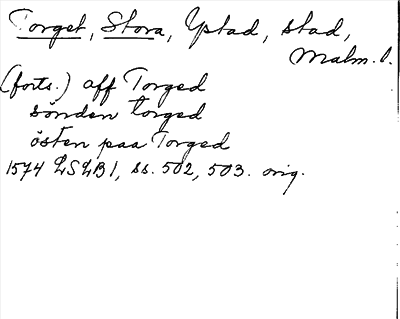 Torget, Stora, Ystad, stad,
Malm. l.
(forts.) aff Torged
sönden torged
östen paa Torged
1574 LSLB1, ss. 502, 503. orig.